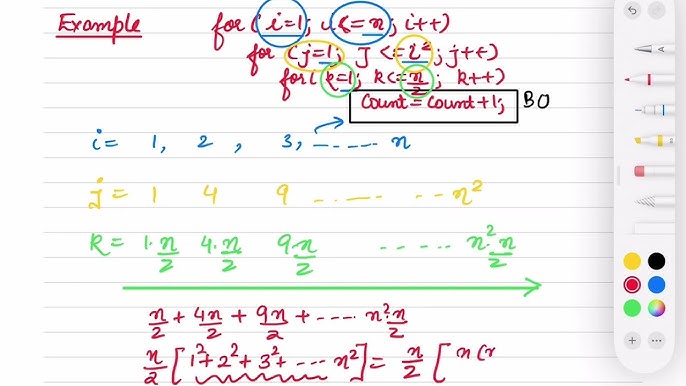 Example for (i=1; i<=n; i++)
for (j=1; J <=i²; j++)
for( k=1; k<=n/2; k++)
Count = Count+1; BO
i= 1, 2, 3, ........ n
j= 1 4 9 ........ n²
k= 1·n/2 4·n/2 9n/2 ..... n²·n/2
n/2 + 4n/2 + 9n/2 + ---- n²·n/2
n/2 [1²+2²+3²+ ---- n²] = n/2 [ n(